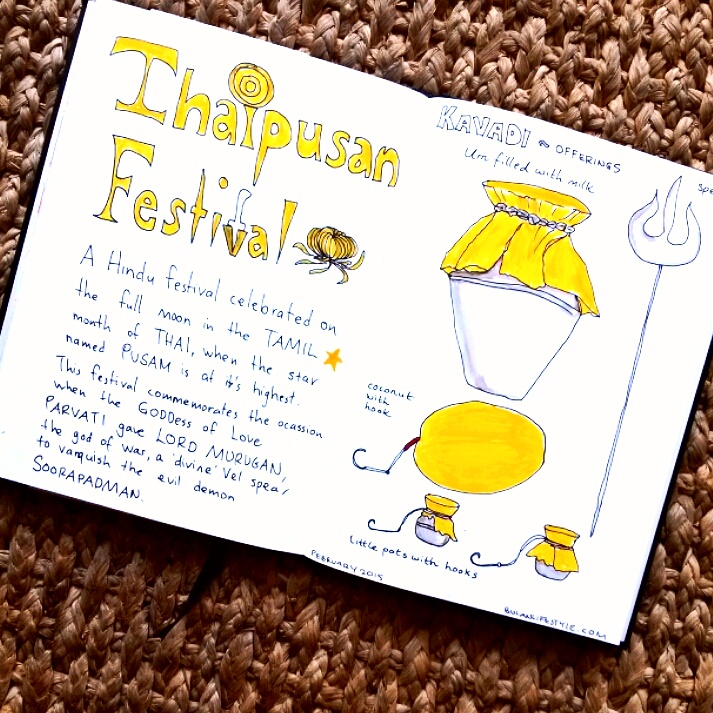 Thaipusan
Festival
A Hindu festival celebrated on
the full moon in the TAMIL
month of THAI, when the star
named PUSAM is at it's highest.
This festival commemorates the ocassion
when the GODDess of Love
PARVATI gave LORD MURUGAN,
the god of war, a 'divine' Vel spear
to vanquish the evil demon
SOORAPADMAN.
KAVADI OFFERINGS
Urn filled with milk
coconut
with
hook
Little pots with hooks
FEBRUARY 2015